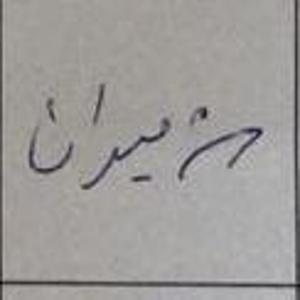 شمیران